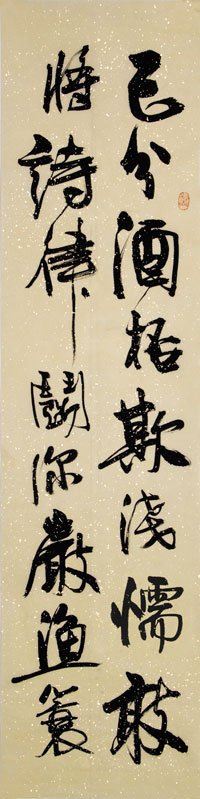 已分酒杯欺淺懦敢
將詩律鬭深嚴漁蓑